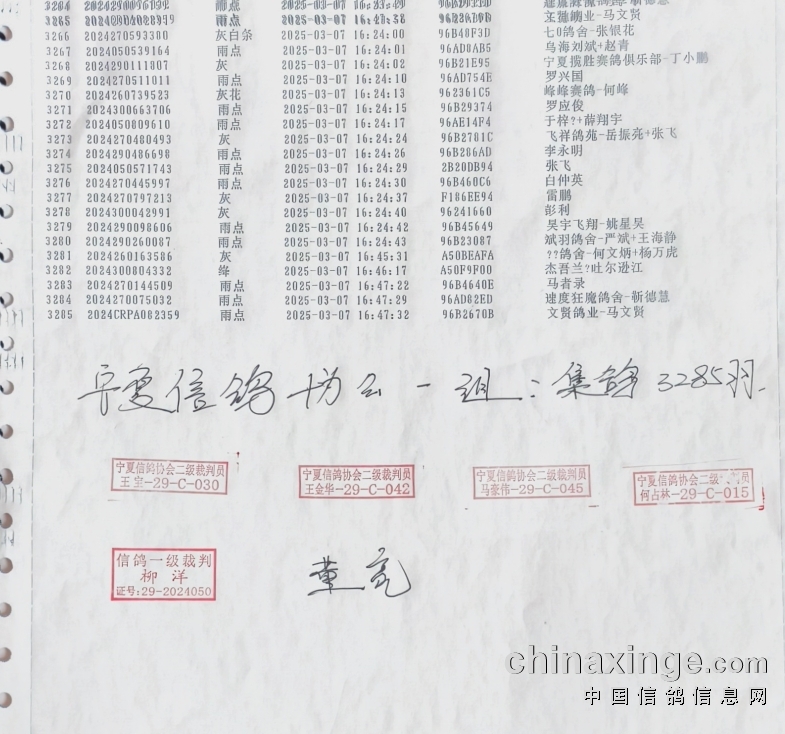 3265 雨点 2025-03-07 文贤鸽业-马文贤
3266 2024270593380 灰白条 2025-03-07 16:24:00 96B48F3D 七0鸽舍-张银花
3267 2024050539164 雨点 2025-03-07 16:24:01 96AD8AB5 乌海刘斌+赵青
3268 2024290111807 灰 2025-03-07 16:24:02 96B21E95 宁夏揽胜赛鸽俱乐部-丁小鹏
3269 2024270511011 雨点 2025-03-07 16:24:10 96AD754E 罗兴国
3270 2024260739523 灰花 2025-03-07 16:24:13 962361C5 峰峰赛鸽-何峰
3271 2024300663706 雨点 2025-03-07 16:24:15 96B29374 罗应俊
3272 2024050809610 雨点 2025-03-07 16:24:17 96AE14F4 于梓?+薛翔宇
3273 2024270480493 灰 2025-03-07 16:24:24 96B2781C 飞祥鸽苑-岳振亮+张飞
3274 2024290486698 雨点 2025-03-07 16:24:26 96B286AD 李永明
3275 2024050571743 雨点 2025-03-07 16:24:29 2B20DB94 张飞
3276 2024270445997 雨点 2025-03-07 16:24:30 96B460C6 白仲英
3277 2024270797213 灰 2025-03-07 16:24:37 F186EE94 雷鹏
3278 2024300042991 灰 2025-03-07 16:24:40 96241660 彭利
3279 2024290098606 雨点 2025-03-07 16:24:42 96B45649 昊宇飞翔-姚星昊
3280 2024290260087 雨点 2025-03-07 16:24:43 96B23087 斌羽鸽舍-严斌+王海静
3281 2024260163586 灰 2025-03-07 16:45:31 A50BEAFA ??鸽舍-何文炳+杨万虎
3282 2024300804332 绛 2025-03-07 16:46:17 A50F9F00 杰吾兰?吐尔逊江
3283 2024270144509 雨点 2025-03-07 16:47:22 96B4640E 马者录
3284 2024270075032 雨点 2025-03-07 16:47:29 96AD82ED 速度狂魔鸽舍-靳德慧
3285 2024CRPA082359 雨点 2025-03-07 16:47:32 96B2670B 文贤鸽业-马文贤
宁夏信鸽协会一组：集鸽3285羽.
宁夏信鸽协会二级裁判员 宁夏信鸽协会二级裁判员 宁夏信鸽协会二级裁判员 宁夏信鸽协会二级判员
王宝-29-C-030 王金华-29-C-042 马豪伟-29-C-045 何占林-29-C-015
信鸽一级裁判
柳洋 董亮
证号:29-2024050
chinaxinge.com
中国信鸽信息网